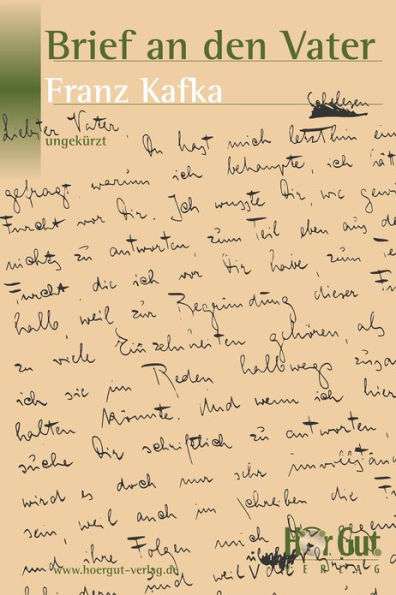 Brief an den Vater
Franz Kafka
Liebster Vater,
ungekürzt
Du hast mich letzthin ein
gefragt, warum ich behaupte, ich hätt
Furcht vor Dir. Ich wusste Dir, wie gewö
nichts zu antworten, zum Teil eben aus de
Furcht die ich vor Dir habe, zum Te
halb, weil zur Begründung dieser Fu
zu viele Einzelnheiten gehören, als
ich sie im Reden halbwegs zusa
halten könnte. Und wenn ich hier
suche Dir schriftlich zu antworten,
wird es doch nur sehr unvollstän
sein, weil auch im Schreiben die Fu
und ihre Folgen mich Dir gegen
Hör Gut
VERLAG
www.hoergut-verlag.de
und weil